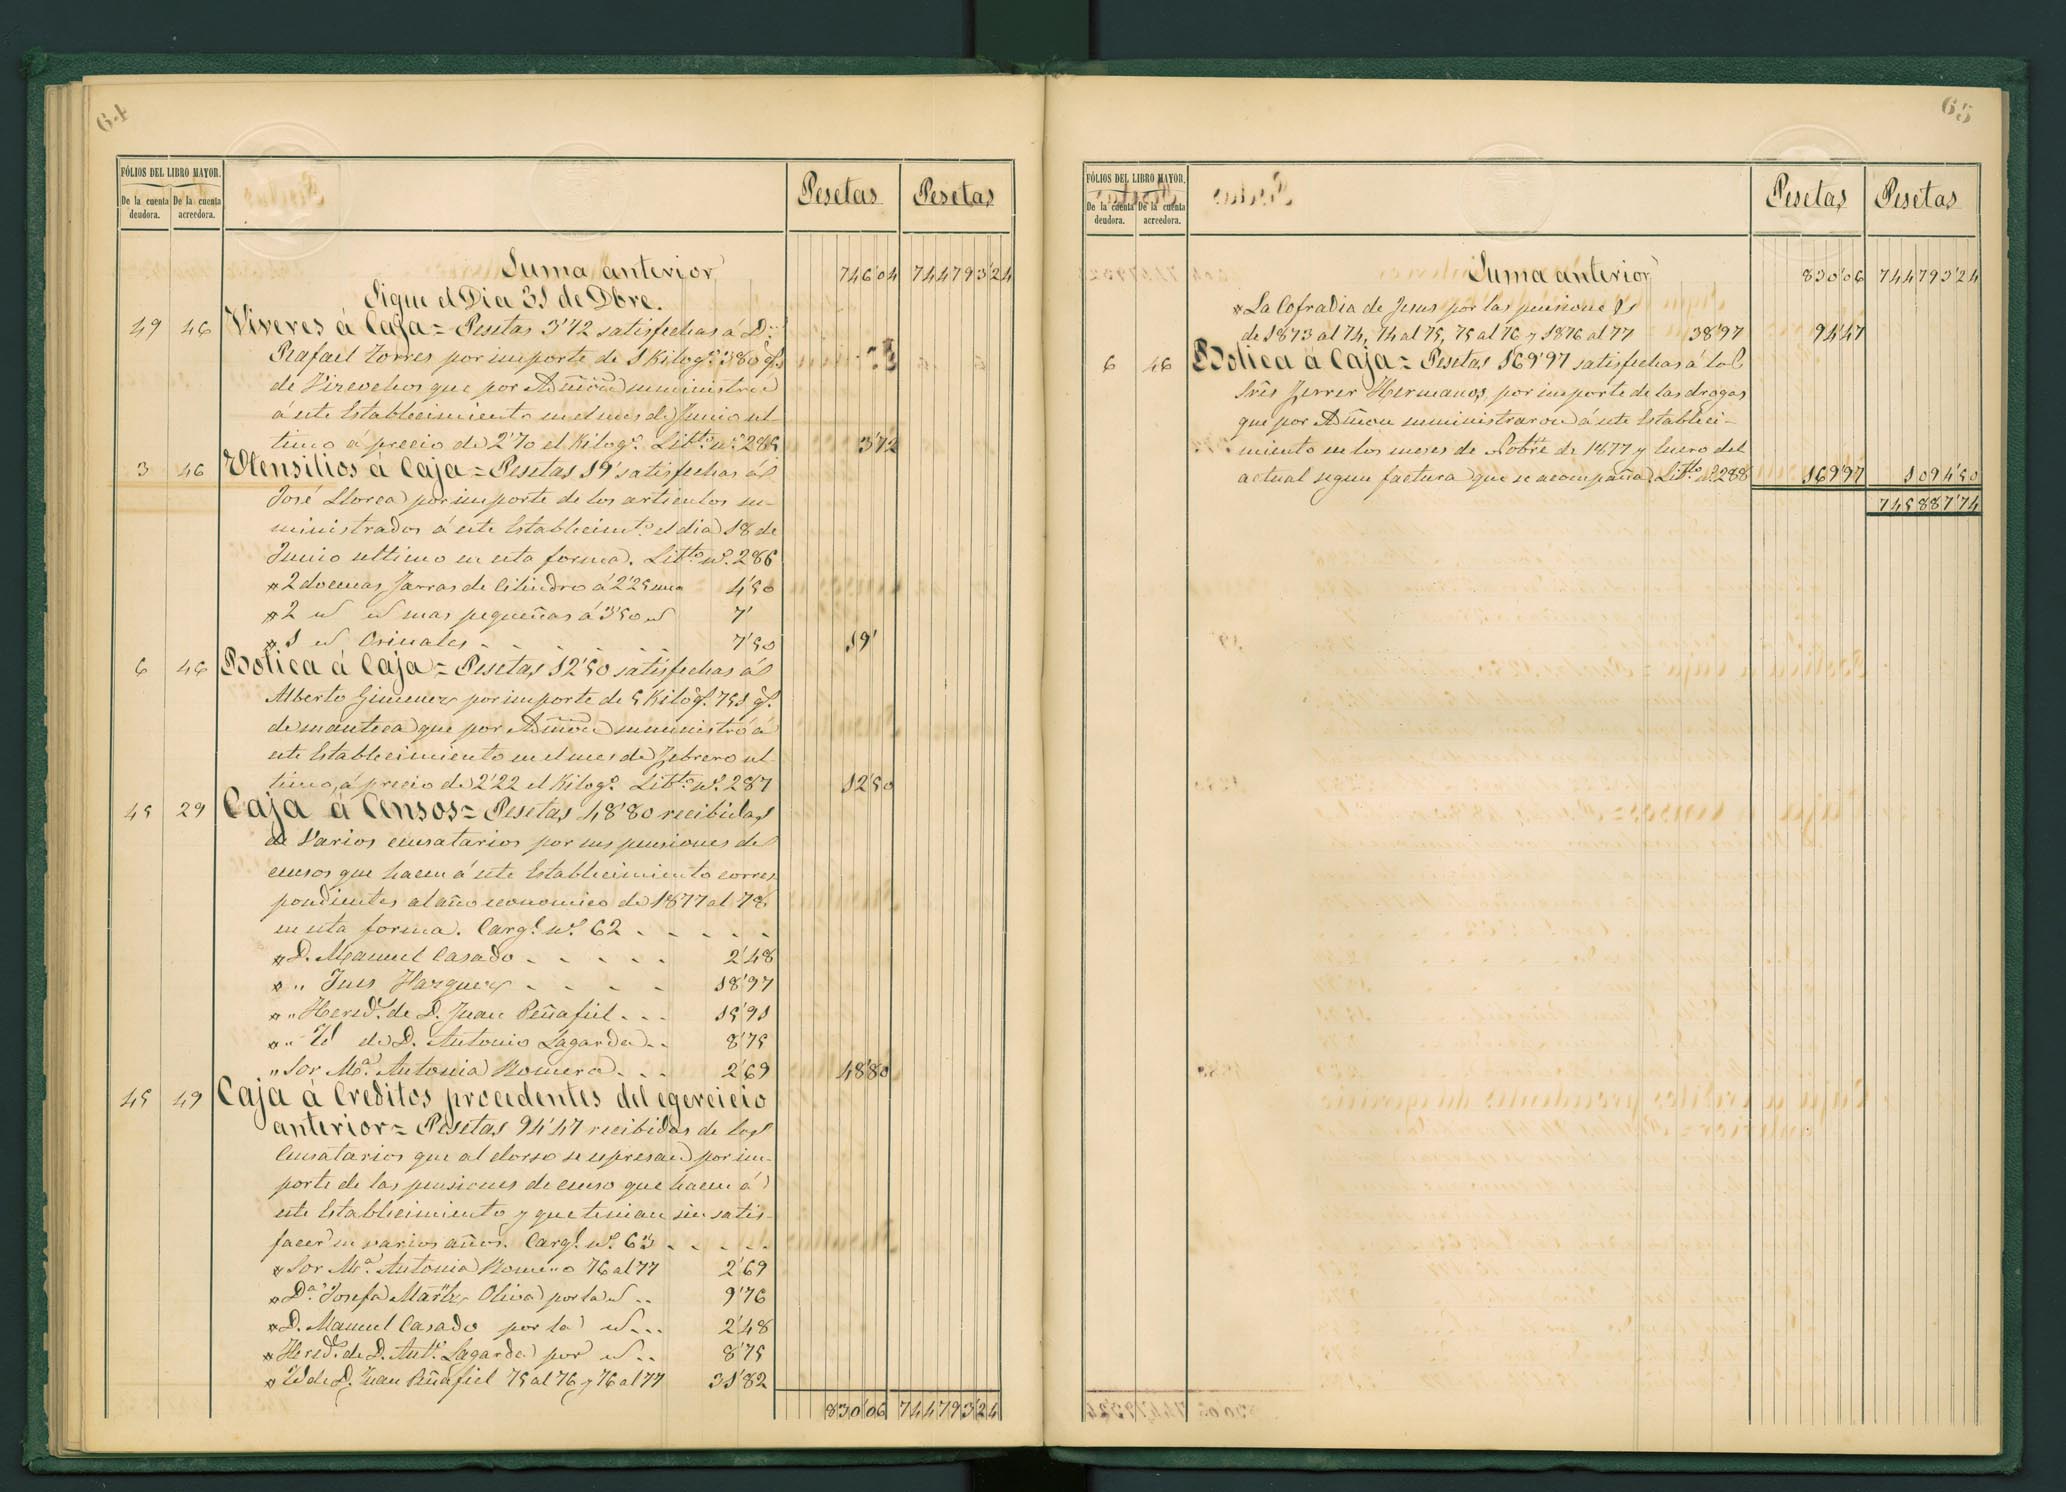 64
FÓLIOS DEL LIBRO MAYOR.
De la cuenta deudora.
De la cuenta acreedora.
Pesetas Pesetas
Suma anterior 746'04 744793'24
Sigue el Dia 31 de Dbre.
49 46 Viveres á Caja = Pesetas 3'72 satisfechas á Dn.
Rafael Torres por importe de 1 Kilogo. 380 gs.
de que por Admon suministró
á este Establecimiento en el mes de Junio ul-
timo á precio de 2'70 el Kilogo. Libto. no. 285 3'72
3 46 Utensilios á Caja = Pesetas 19' satisfechas á
José Llorca por importe de los articulos su-
ministrados á este Establecimto. el dia 18 de
Junio ultimo en esta forma. Libto. no. 286
" 2 docenas Jarras de Cilindro á 2'25 una 4'50
" 2 id id mas pequeñas á 3'50 id 7'
" 1 id Orinales 7'50 19'
6 46 Botica á Caja = Pesetas 12'50 satisfechas á
Alberto Gimenez por importe de 5 Kilogs. 751 gs.
de manteca que por Admon suministró á
este Establecimiento en el mes de Febrero ul-
timo, á precio de 2'22 el Kilogo. Libto. no. 287 12'50
45 29 Caja á Censos = Pesetas 48'80 recibidas
de Varios censatarios por sus pensiones de
censos que hacen á este Establecimiento corres
pondientes al año economico de 1877 al 78,
en esta forma. Carge. no. 62
" D. Manuel Casado 2'48
" " Luis 18'97
" " Hereds. de D. Juan Peñafiel 15'91
" " Id de D. Antonio Lagarda 8'75
" Sor Ma. Antonia Romero 2'69 48'80
45 49 Caja á Creditos procedentes del egercicio
anterior = Pesetas 94'47 recibidas de los
Censatarios que al dorso se espresan por im-
porte de las pensiones de censo que hacen á
este Establecimiento y que tenian sin satis-
facer en varios años. Carge. no. 63
" Sor Ma. Antonia Romero 76 al 77 2'69
" Da. Josefa Martz. Oliva por la id 9'76
" D. Manuel Casado por la id 2'48
" Hereds. de D. Anto. Lagarda por id 8'75
" Id de D. Juan Peñafiel 75 al 76 y 76 al 77 31'82
830'06 744793'24
65
FÓLIOS DEL LIBRO MAYOR.
De la cuenta deudora.
De la cuenta acreedora.
Pesetas Pesetas
Suma anterior 830'06 744793'24
" La Cofradia de Jesus por las pensiones
de 1873 al 74, 74 al 75, 75 al 76 y 1876 al 77 38'97 94'47
6 46 Botica á Caja = Pesetas 169'97 satisfechas á los
Sres Ferrer Hermanos, por importe de las drogas
que por Admon suministraron á este Estableci-
miento en los meses de Nobre de 1877 y Enero del
actual segun factura que se acompaña Libto. no. 288 169'97 1094'50
745887'74